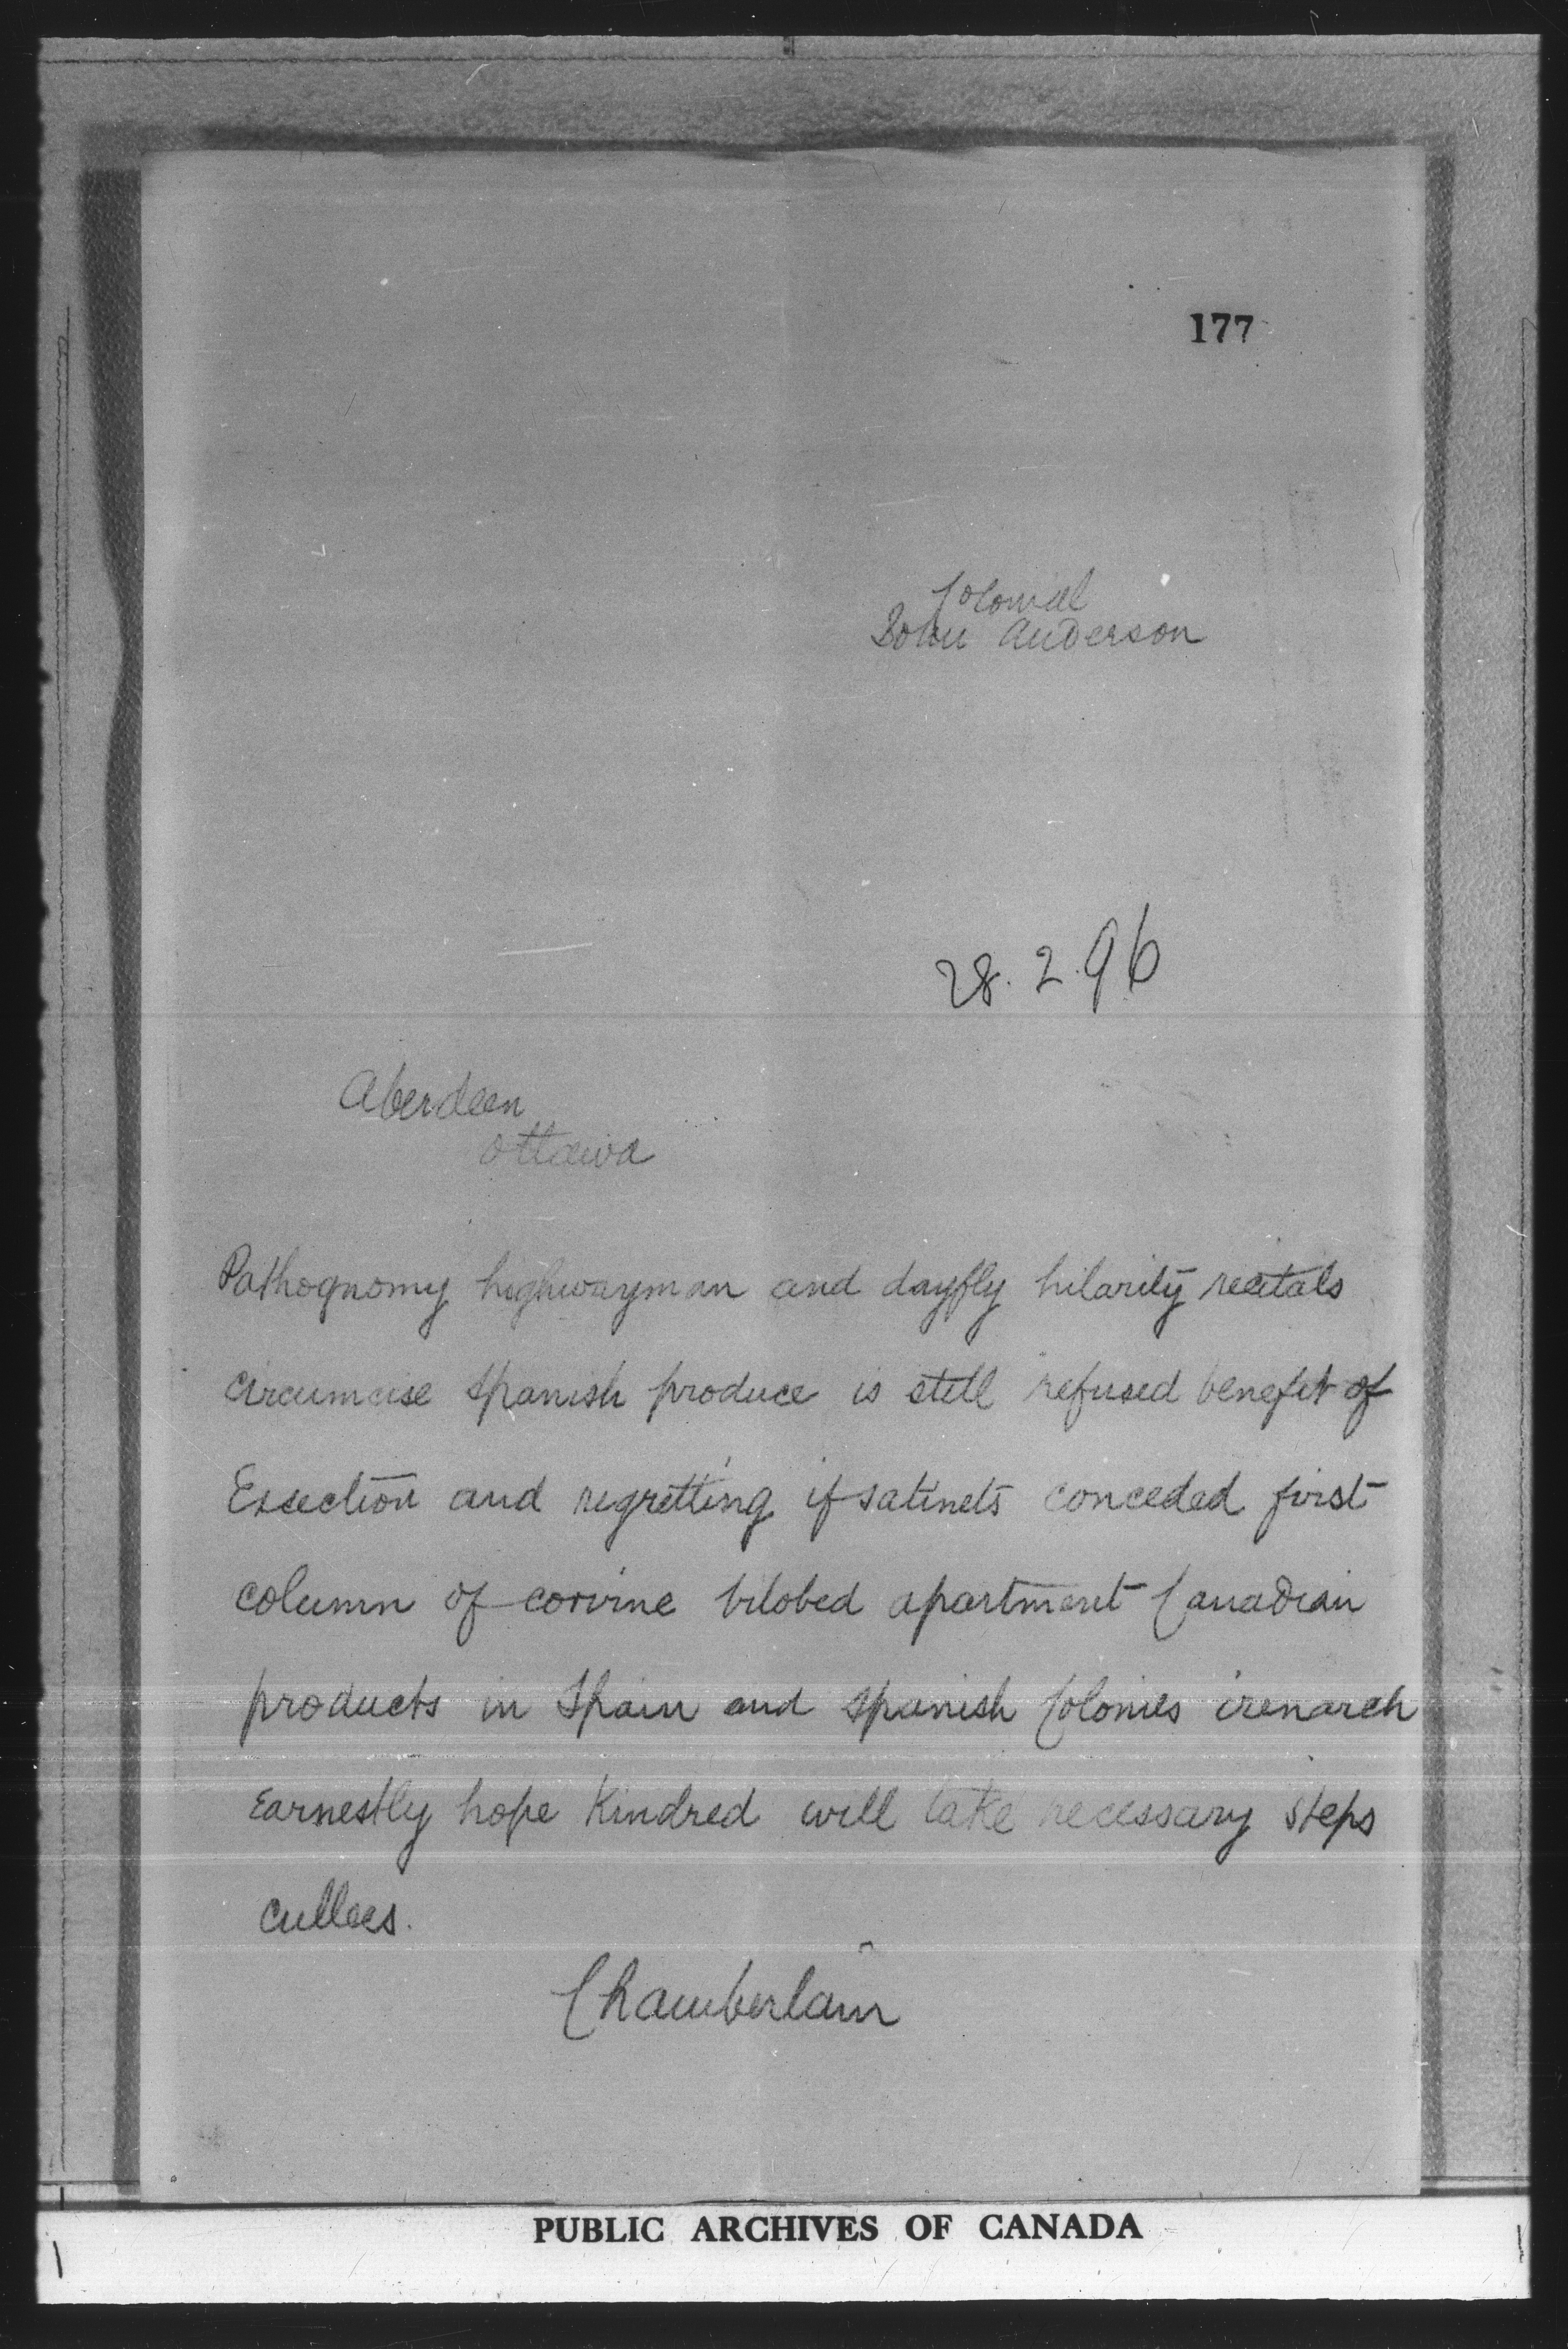 177
Colonial
John Anderson
28.2.96
Aberdeen
Ottawa
Pathognomy highwayman and dayfly hilarity recitals
circumcise Spanish produce is still refused benefit of
Exsection and regretting if satinets conceded first
column of corvine bilobed apartment Canadian
products in Spain and Spanish Colonies irenarch
Earnestly hope Kindred will take necessary steps
cullees.
Chamberlain
PUBLIC ARCHIVES OF CANADA